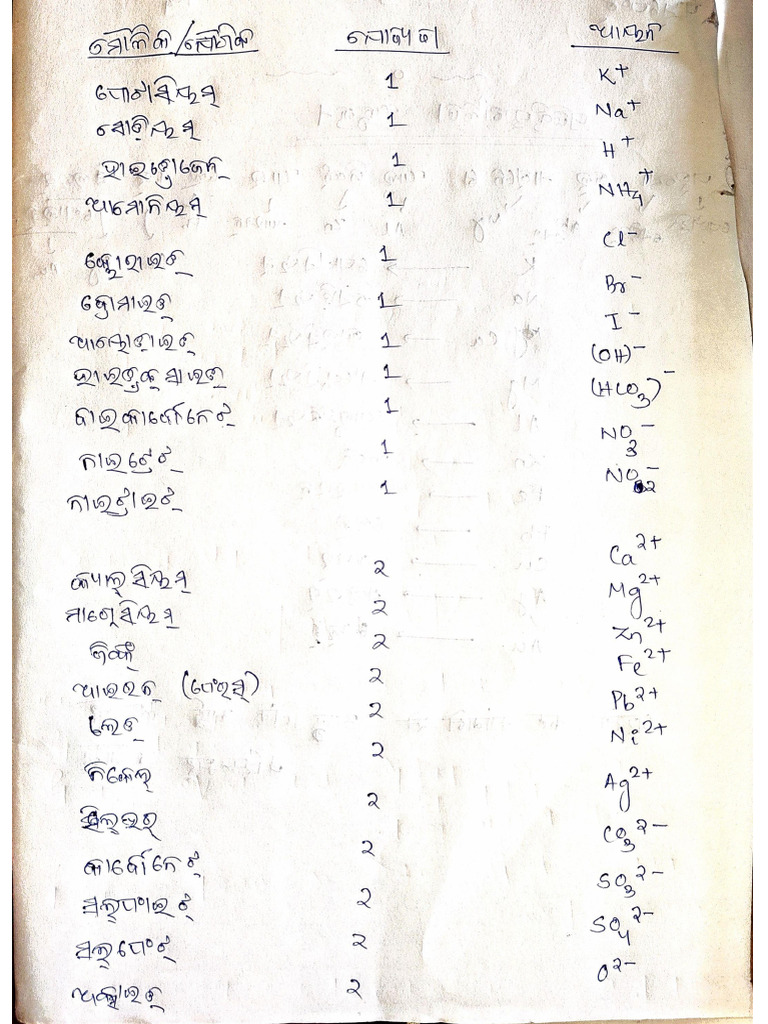 ମୌଳିକ/ଯୌଗିକ ଯୋଜ୍ୟତା ଆୟନ
ପୋଟାସିୟମ୍ 1 K⁺
ସୋଡ଼ିୟମ୍ 1 Na⁺
ହାଇଡ୍ରୋଜେନ୍ 1 H⁺
ଆମୋନିୟମ୍ 1 NH₄⁺
କ୍ଲୋରାଇଡ୍ 1 Cl⁻
ବ୍ରୋମାଇଡ୍ 1 Br⁻
ଆୟୋଡ଼ାଇଡ୍ 1 I⁻
ହାଇଡ୍ରକ୍ସାଇଡ୍ 1 (OH)⁻
ବାଇକାର୍ବୋନେଟ୍ 1 (HCO₃)⁻
ନାଇଟ୍ରେଟ୍ 1 NO₃⁻
ନାଇଟ୍ରାଇଟ୍ 1 NO₂⁻
କ୍ୟାଲ୍ସିୟମ୍ 2 Ca²⁺
ମାଗ୍ନେସିୟମ୍ 2 Mg²⁺
ଜିଙ୍କ୍ 2 Zn²⁺
ଆଇରନ୍ (ଫେରସ୍) 2 Fe²⁺
ଲେଡ୍ 2 Pb²⁺
ନିକେଲ୍ 2 Ni²⁺
ସିଲ୍ଭର୍ 2 Ag²⁺
କାର୍ବୋନେଟ୍ 2 CO₃²⁻
ସଲ୍ଫାଇଟ୍ 2 SO₃²⁻
ସଲ୍ଫେଟ୍ 2 SO₄²⁻
ଅକ୍ସାଇଡ୍ 2 O²⁻